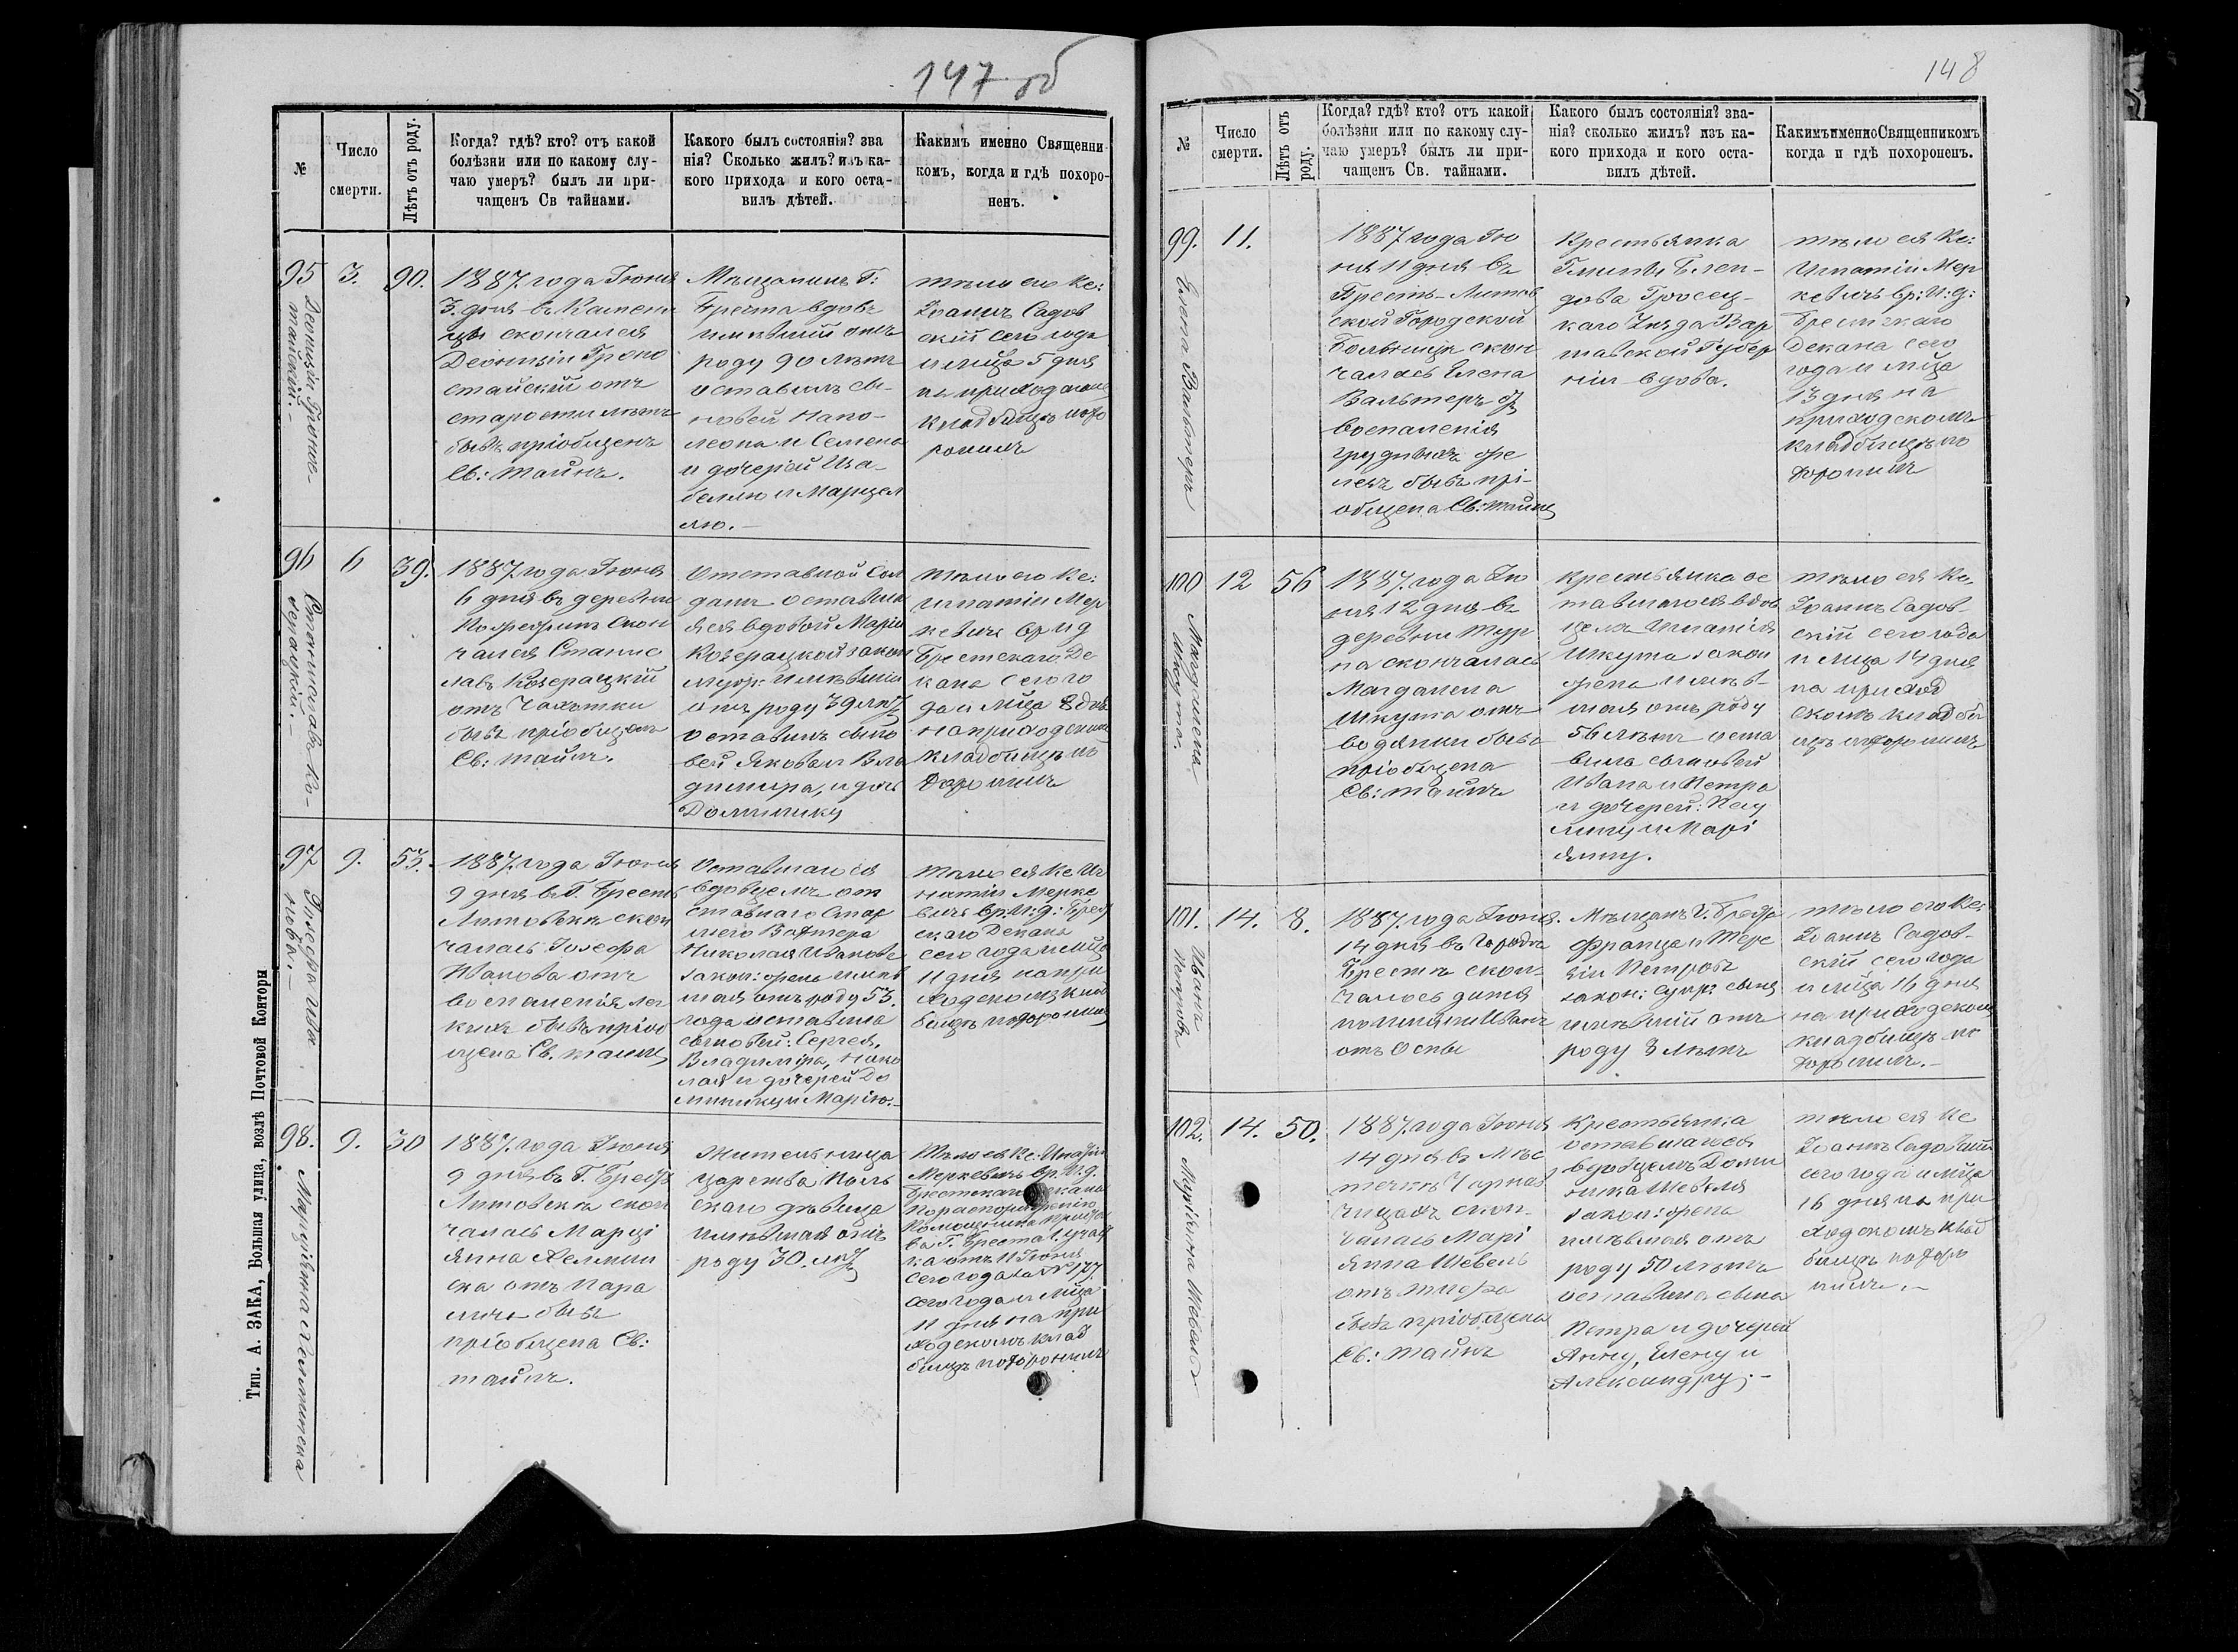 147 об
№
Число
смерти.
Лѣтъ отъ роду.
Когда? гдѣ? кто? отъ какой
болѣзни или по какому слу-
чаю умеръ? былъ ли при-
чащенъ Св тайнами.
Какого былъ состоянія? зва
нія? Сколько жилъ? изъ ка-
кого прихода и кого оста-
вилъ дѣтей.
Какимъ именно Священни
комъ, когда и гдѣ похоро-
ненъ.
95
Деонизій Гроно-
стайскій.-
3.
90.
1887. года Іюня
3. дня въ Камени
цѣ скончался
Деонизій Гроно
стайскій отъ
старости лѣтъ
бывъ пріобщенъ
Св: Тайнъ.
Мѣщанинъ Г.
Бреста вдовъ
имѣвшій отъ
роду 90 лѣтъ
оставилъ сы-
новей Напо-
леона и Семена
и дочерей Иза-
беллю и Марцел
лю.-
тѣло его Кс:
Іоаннъ Садов
скій сего года
и мѣца 5 дня
на приходском
кладбищѣ похо
ронилъ
96
Станиславъ Ко-
зерацкій.-
6
39.
1887. года Іюня
6 дня въ деревни
скон
чался Станис
лавъ Козерацкій
отъ Чахотки
бывъ пріобщенъ
Св: тайнъ.
Отставной Сол
датъ оставив
яся вдовой Марію
Козерацкой закон
имѣвшій
отъ роду 39 лѣтъ
оставилъ сыно
вей Якова и Вла
диміра, и дочь
Доминику
тѣло его Кс:
Игнатій Мер
кевичъ вр и д
Брестскаго Де
кана сего го
да и мѣца 8 дня
на приходском
кладбищѣ по
хоронилъ
97
Іозефа Ива
нова.-
9.
53.
1887. года Іюня
9 дня въ Г. Брестѣ
Литовскѣ скон
чалась Іозефа
Иванова отъ
воспаленія лег
кихъ бывъ пріоб
щена Св. тайнъ
Оставшагося
вдовцемъ от
ставнаго Стар
шего Вахтера
Николая Иванова
закон: жена имѣв
шая отъ роду 53.
года оставила
сыновей: Сергея,
Владиміра, Нико
лая и дочерей До
минику и Марію.-
тѣло ея Кс Иг
натій Мерке
вичъ вр. И: д: Брест
скаго Декана
сего года и мѣца
11 дня на при
ходскомъ клад
бищѣ похоронилъ
98.
Марціянна Хелминска
9.
30
1887. года Іюня
9 дня въ Г. Брестѣ
Литовскѣ скон
чалась Марці
янна Хелмин
ска отъ Пара
лича бывъ
пріобщена Св:
тайнъ.
Жительница
царства Поль
скаго дѣвица
имѣвшая отъ
роду 30. лѣтъ
Тѣло ея Кс: Игнатій
Меркевичъ вр. И. д.
Брестскаго Декана
По распоряженію
Помощника пристава
Г. Бреста 1. участ
ка отъ 11 Іюня
сего года за № 177.
сего года и мѣца
11 дня на при
ходскомъ клад
бищѣ похоронилъ
Тип. А. ЗАКА, Большая улица, возлѣ Почтовой Конторы
148
№
Число
смерти.
Лѣтъ отъ
роду.
Когда? гдѣ? кто? отъ какой
болѣзни или по какому слу-
чаю умеръ? былъ ли при-
чащенъ Св. тайнами.
Какого былъ состоянія? зва-
нія? сколько жилъ? изъ ка-
кого прихода и кого оста-
вилъ дѣтей.
КакимъименноСвященникомъ
когда и гдѣ похороненъ.
99.
Елена Вальтеръ
11.
1887 года Ію
ня 11 дня въ
Брестъ-Литов
ской Городской
Больницѣ скон
чалась Елена
Вальтеръ от
воспаленія
грудныхъ же
лезъ бывъ прі-
общена Св: тайнъ
Крестьянка
Гмины Блен-
дова Гроец-
каго Уѣзда Вар
шавской Губер
ніи вдова.
тѣло ея Кс:
Игнатій Мер
кевичъ вр: И: д:
Брестскаго
Декана сего
года и мѣца
13 дня на
приходскомъ
кладбищѣ по
хоронилъ
100
Магдалена
Шкута.
12
56
1887. года Ію
ня 12 дня въ
деревни Тур
на скончалась
Магдалена
Шкута отъ
водянки бывъ
пріобщена
Св: тайнъ
Крестьянка ос
тавшагося вдов
цемъ Игнатія
Шкута закон
жена имѣв-
шая отъ роду
56 лѣтъ оста
вила сыновей
Ивана и Петра
и дочерей: Пау
лину и Марі
янну.
тѣло ея Кс.
Іоаннъ Садов-
скій сего года
и мѣца 14 дня
на приход
скомъ кладби
щѣ похоронилъ
101.
Иванъ
Петровъ
14.
8.
1887. года Іюня.
14 дня въ Городѣ
Брестѣ скон-
чалось дитя
по имени Иванъ
отъ Оспы
Мѣщанъ Г. Бреста
Франца и Тере
зіи Петровъ
закон: супр: сынъ
имѣвшій отъ
роду 8 лѣтъ
тѣло его Кс:
Іоаннъ Садов-
скій сего года
и мѣца 16 дня
на приходскомъ
кладбищѣ по
хоронилъ.-
102.
Маріянна Шевель
14.
50.
1887. года Іюня
14 дня въ Мѣс
течкѣ Чернав
чицахъ скон-
чалась Марі
янна Шевель
отъ тифа
бывъ пріобщена
Св: тайнъ
Крестьянка
оставшагося
вдовцемъ Доми
ника Шевеля
закон: жена
имѣвшая отъ
роду 50 лѣтъ
оставила сына
Петра и дочерей
Анну, Елену и
Александру.-
тѣло ея Кс
Іоаннъ Садовскій
сего года и мѣца
16 дня на при
ходскомъ клад
бищѣ похоро
нилъ.-